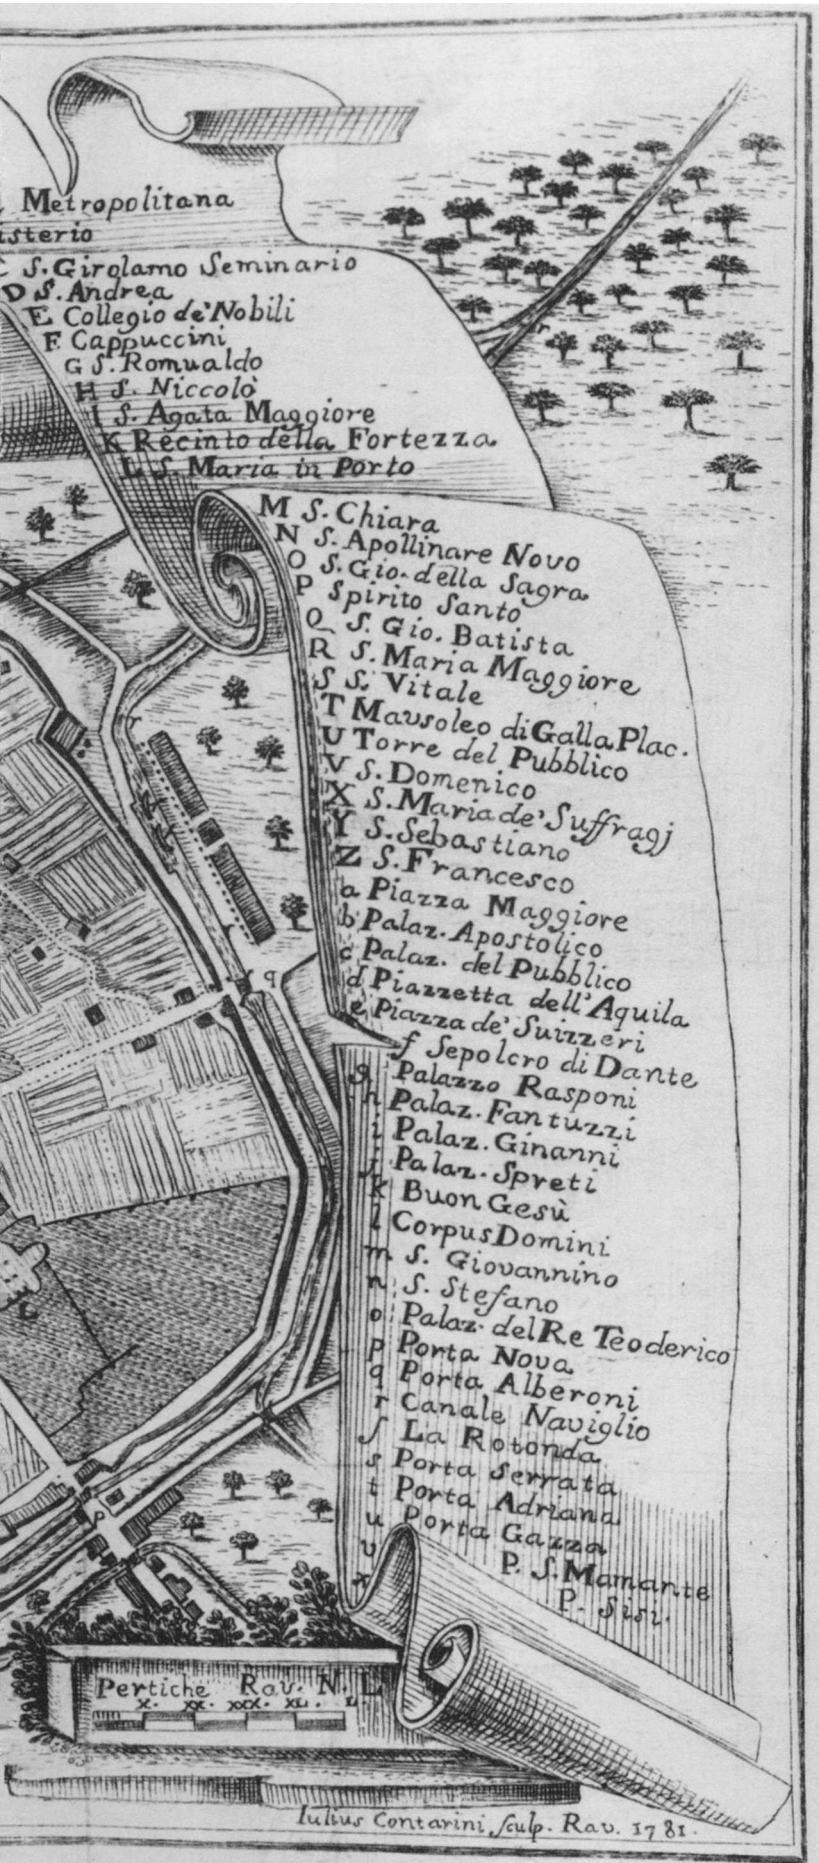 Metropolitana
isterio
C S. Girolamo Seminario
D S. Andrea
E Collegio de' Nobili
F Cappuccini
G S. Romualdo
H S. Niccolò
I S. Agata Maggiore
K Recinto della Fortezza
L S. Maria in Porto
M S. Chiara
N S. Apollinare Novo
O S. Gio. della Sagra
P Spirito Santo
Q S. Gio. Batista
R S. Maria Maggiore
S S. Vitale
T Mausoleo di Galla Plac.
U Torre del Pubblico
V S. Domenico
X S. Maria de' Suffragj
Y S. Sebastiano
Z S. Francesco
a Piazza Maggiore
b Palaz. Apostolico
c Palaz. del Pubblico
d Piazzetta dell'Aquila
e Piazza de' Suizzeri
f Sepolcro di Dante
g Palazzo Rasponi
h Palaz. Fantuzzi
i Palaz. Ginanni
j Palaz. Spreti
k Buon Gesù
l Corpus Domini
m S. Giovannino
n S. Stefano
o Palaz. del Re Teoderico
p Porta Nova
q Porta Alberoni
r Canale Naviglio
ſ La Rotonda
s Porta Serrata
t Porta Adriana
u Porta Gazza
v P. S. Mamante
x P. Sisi.
r
r
r
q
p
Pertiche Rav. N. L
X. XX. XXX. XL. L
Iulius Contarini Sculp. Rav. 1781.